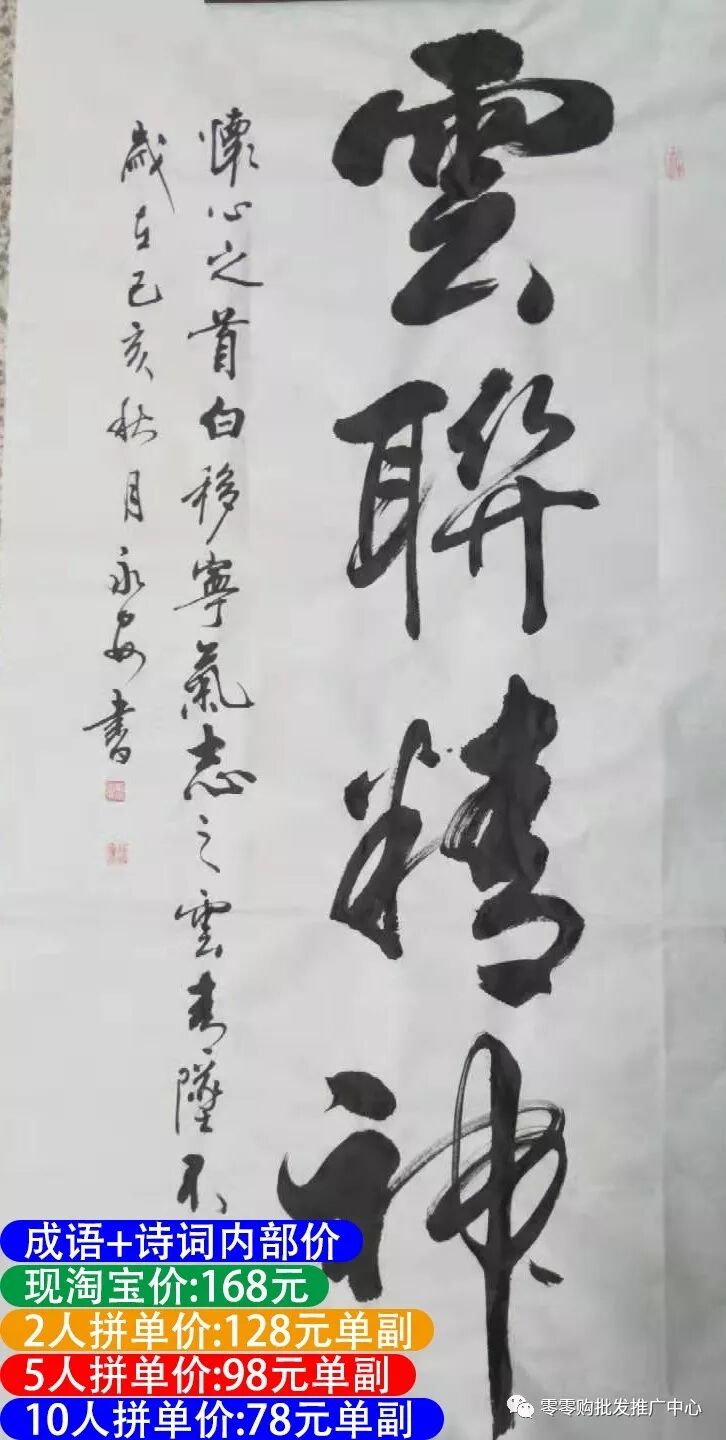 雲聯精神
心之首白移寧氣志之雲青墜不
歲在己亥秋月永安書
成语+诗词内部价
现淘宝价:168元
2人拼单价:128元单副
5人拼单价:98元单副
10人拼单价:78元单副
零零购批发推广中心